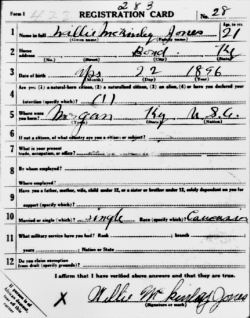 Form 1
283
REGISTRATION CARD
No. 28
1 Name in full Willie McKinley Jones
(Given name) (Family name)
Age, in yrs. 21
2 Home address Bond Ky
(No.) (Street) (City) (State)
3 Date of birth 22 1896
(Month) (Day) (Year)
4 Are you (1) a natural-born citizen, (2) a naturalized citizen, (3) an alien, (4) or have you declared your
intention (specify which)? (1)
5 Where were you born? Morgan Ky U.S.A.
(Town) (State) (Nation)
6 If not a citizen, of what country are you a citizen or subject?
7 What is your present
trade, occupation, or office?
8 By whom employed?
Where employed?
9 Have you a father, mother, wife, child under 12, or a sister or brother under 12, solely dependent on you for
support (specify which)?
10 Married or single (which)? Single Race (specify which)? Caucasian
11 What military service have you had? Rank ; branch
years ; Nation or State
12 Do you claim exemption
from draft (specify grounds)?
I affirm that I have verified above answers and that they are true.
X Willie McKinley Jones
(Signature or mark)